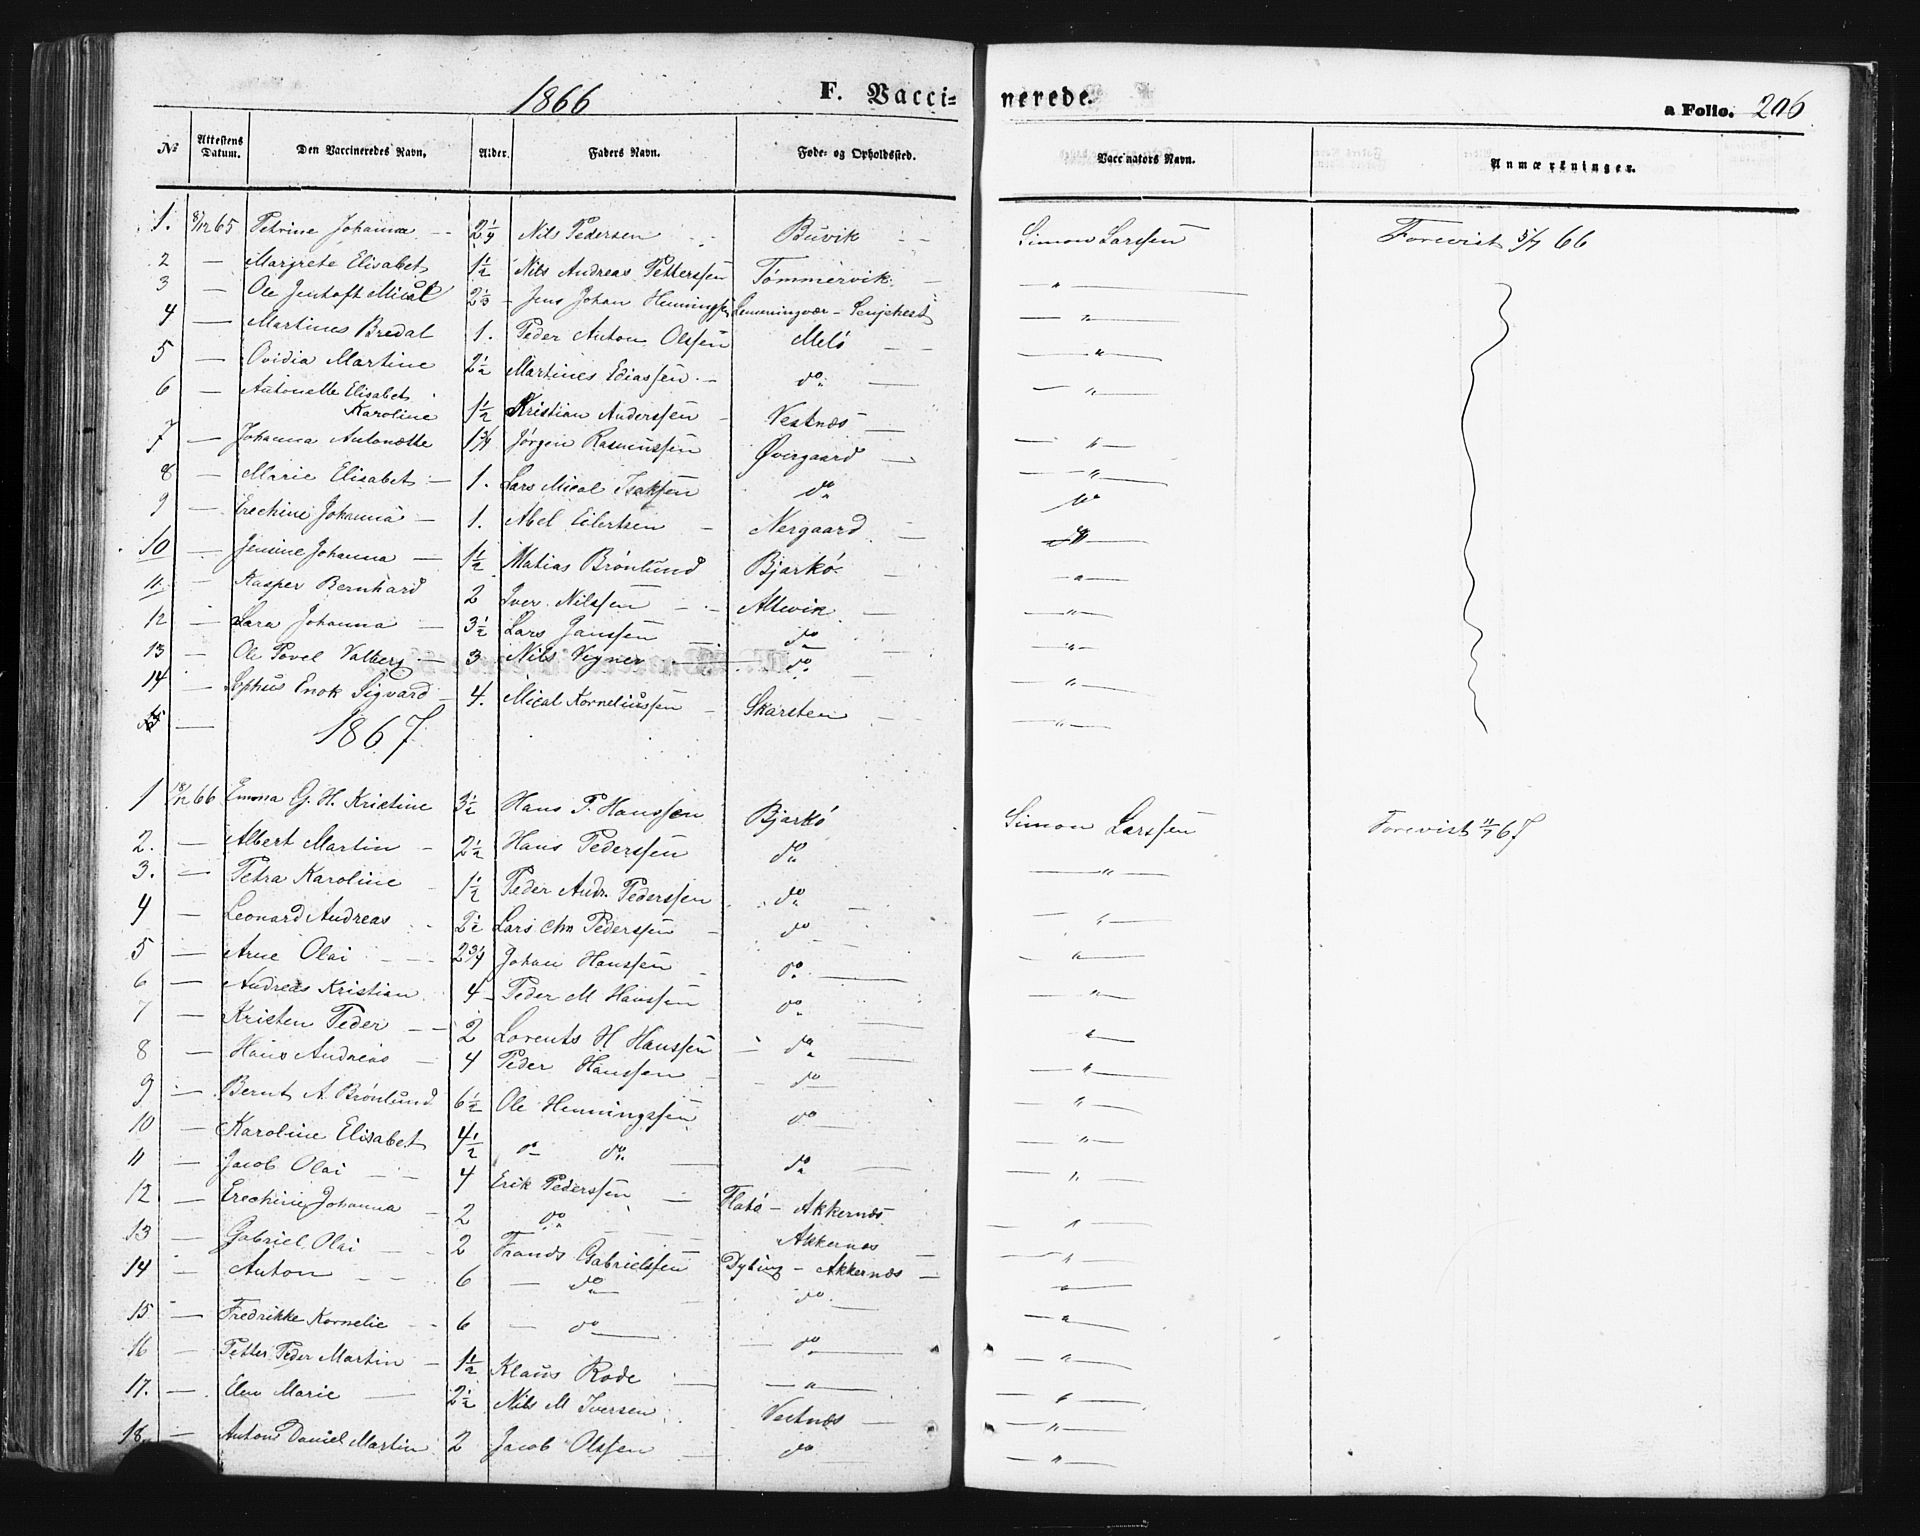 1866 F. Vacci- nerede. a Folio. 206
No Attestens Datum. Den Vaccineredes Navn, Alder. Faders Navn. Føde- og Opholdssted. Vaccinators Navn. Anmærkninger.
1. 8/12 65 Petrine Johanna 2 1/4 Nils Pedersen Buvik Simon Larssen Forevist 5/7 66
2 — Margrete Elisabet 1 1/2 Nils Andreas Petterssen Tømmervik — " —
3 — Ole Jenhoft Mical 2 1/3 Jens Johan Henningsen Lemmingvær - Senjehest — " —
4 — Martines Bredal 1. Peder Anton Olssen Melö — " —
5 — Ovidia Martine 2 1/2 Martines Ediassen do — " —
6 — Antonette Elisabet
Karoline 1 1/2 Kristian Anderssen Vestnæs — " —
7 — Johanna Antonette 1 3/4 Jørgen Rasmussen Øvergaard — " —
8 — Marie Elisabet 1. Lars Mical Isaksen do "
9 — Erechine Johanna 1. Abel Eilertsen Nergaard — " —
10 — Jensine Johanna 1 1/2 Matias Brønlund Bjarkö — " —
11 — Kasper Bernhard 2 Iver Nilssen Altevik — " —
12 — Lara Johanna 3 1/2 Lars Janssen do — " —
13 — Ole Povel Valberg 3 Nils Vegner do — " —
14 — Sophus Enok Sigvard 4. Mical Korneliussen Skarsten — " —
1867
1 18/12 66 Emma G. H. Kristine 3 1/2 Hans P. Hanssen Bjarkö Simon Larssen Forevist 11/7 67
2. — Albert Martin 2 1/2 Hans Pederssen do — " —
3. — Petra Karoline 1 1/2 Peder Andr. Pederssen do — " —
4 — Leonard Andreas 2 1/2 Lars Chn Pederssen do — " —
5 — Arne Olai 2 3/4 Johan Hanssen do — " —
6 — Andreas Kristian 4 Peder M Hanssen do — " —
7 — Kristen Peder 2 Lorents H Hanssen do — " —
8 — Hans Andreas 4 Peder Hanssen do — " —
9 — Bernt A. Brønlund 6 1/2 Ole Henningssen do — " —
10 — Karoline Elisabet 4 1/2 do do do — " —
11 — Jacob Olai 4 Erik Pederssen Flatö - Akkernæs — " —
12 — Erechine Johanna 2 do Akkernæs — " —
13 — Gabriel Olai 2 Frands Gabrielssen Dybing - Akkernæs — " —
14 — Anton 6 — do do — " —
15 — Fredrikke Kornelie 6 — do do — " —
16 — Petter Peder Martin 1 1/2 Klaus Rode — " — — " —
17. — Elen Marie 2 1/2 Nils M Iversen Vestnæs — " —
18 — Anton Daniel Martin 2 Jacob Olssen do — " —